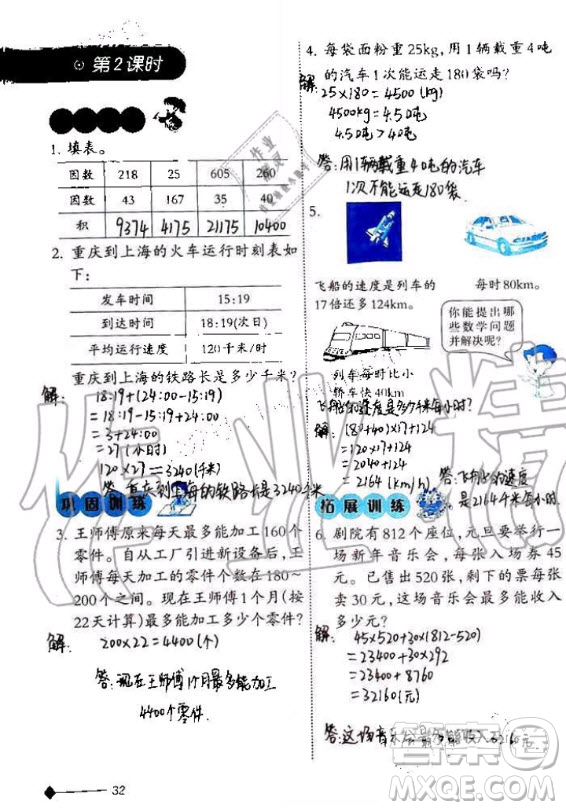 第2课时
1. 填表。
因数 218 25 605 260
因数 43 167 35 40
积 9374 4175 21175 10400
2. 重庆到上海的火车运行时刻表如
下：
发车时间 15:19
到达时间 18:19(次日)
平均运行速度 120千米/时
重庆到上海的铁路长是多少千米?
解: 18:19+(24:00-15:19)
=3+24:00
=27(小时)
120×27=3240(千米)
答:重庆到上海的铁路长是3240千米
巩固训练
3. 王师傅原来每天最多能加工160个
零件。自从工厂引进新设备后，王
师傅每天最多能加工的零件个数在180~
200个之间。现在王师傅1个月(按
22天计算)最多能加工多少个零件?
解: 200×22=4400(个)
答:现在王师傅1个月最多能加工
4400个零件
32
4. 每袋面粉重25kg,用1辆载重4吨
的汽车1次能运走180袋吗?
解: 25×180=4500(kg)
4500kg=4.50吨
4.50吨>4.0吨
答:用1辆载重4吨的汽车
1次不能运走180袋
5.
飞船的速度是列车的
17倍还多124km。
每时80km。
你能提出哪
些数学问题
并解决呢?
列车每时比小
轿车快40km
飞船的速度是多少千米每小时?
解: (80+40)×17+124
=120×17+124
=2164(km/h)
答:飞船的速度
是2164千米每小时
拓展训练
6. 剧院有812个座位,元旦举行了一
场新年音乐会,每张入场券45
元。已售出520张,剩下的票每张
卖30元,这场音乐会最多能收入
多少元?
解: 45×520+30×(812-520)
=23400+30×292
=23400+8760
=32160(元)
答:这场音乐会最多能收入32160元
作业精灵
MXQE.COM